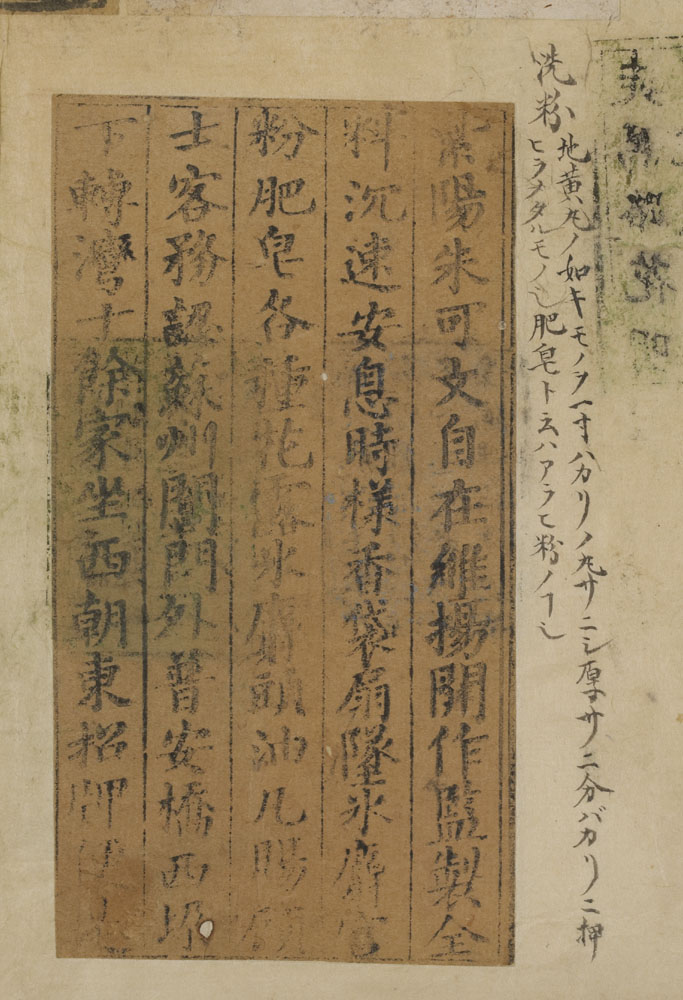 洗粉
地黄丸ノ如キモノヲ一寸ハカリノ丸サニシ厚サ二分バカリニ押
ヒラメタルモノ也肥皂ト云ハアラヒ粉ノヿ也
紫陽朱可文自在維揚開作監製全
料沉速安息時樣香袋扇墜氷麝宮
粉肥皂各種花露氷麝頭油凡賜顧
士客務認蘇州閶門外普安橋西垜
下轉灣士餘家坐西朝東招牌便是